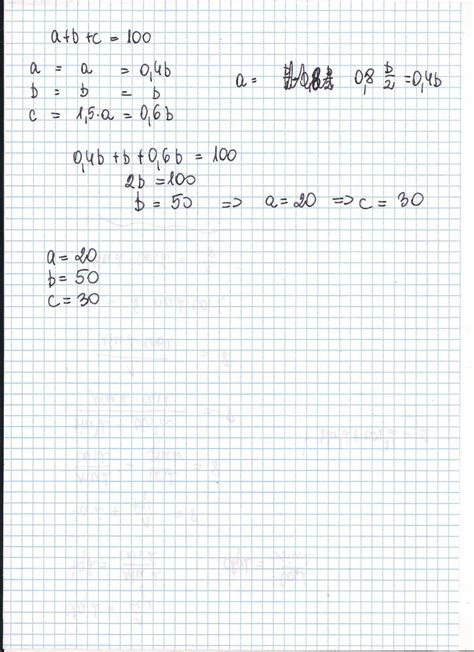 a+b+c = 100
a = a = 0,4b a = 0,8 b/2 = 0,4b
b = b = b
c = 1,5·a = 0,6b
0,4b + b + 0,6b = 100
2b = 100
b = 50 => a = 20 => c = 30
a = 20
b = 50
c = 30